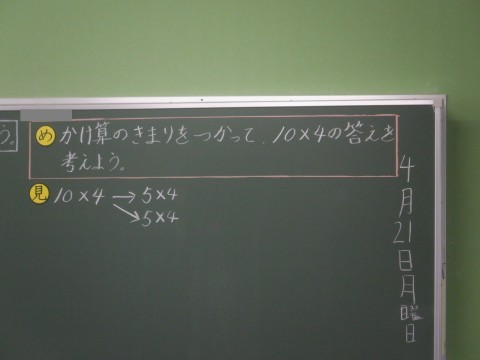 う。
め かけ算のきまりをつかって、10×4の答えを
考えよう。
見 10×4 → 5×4
↘ 5×4
4月21日月曜日